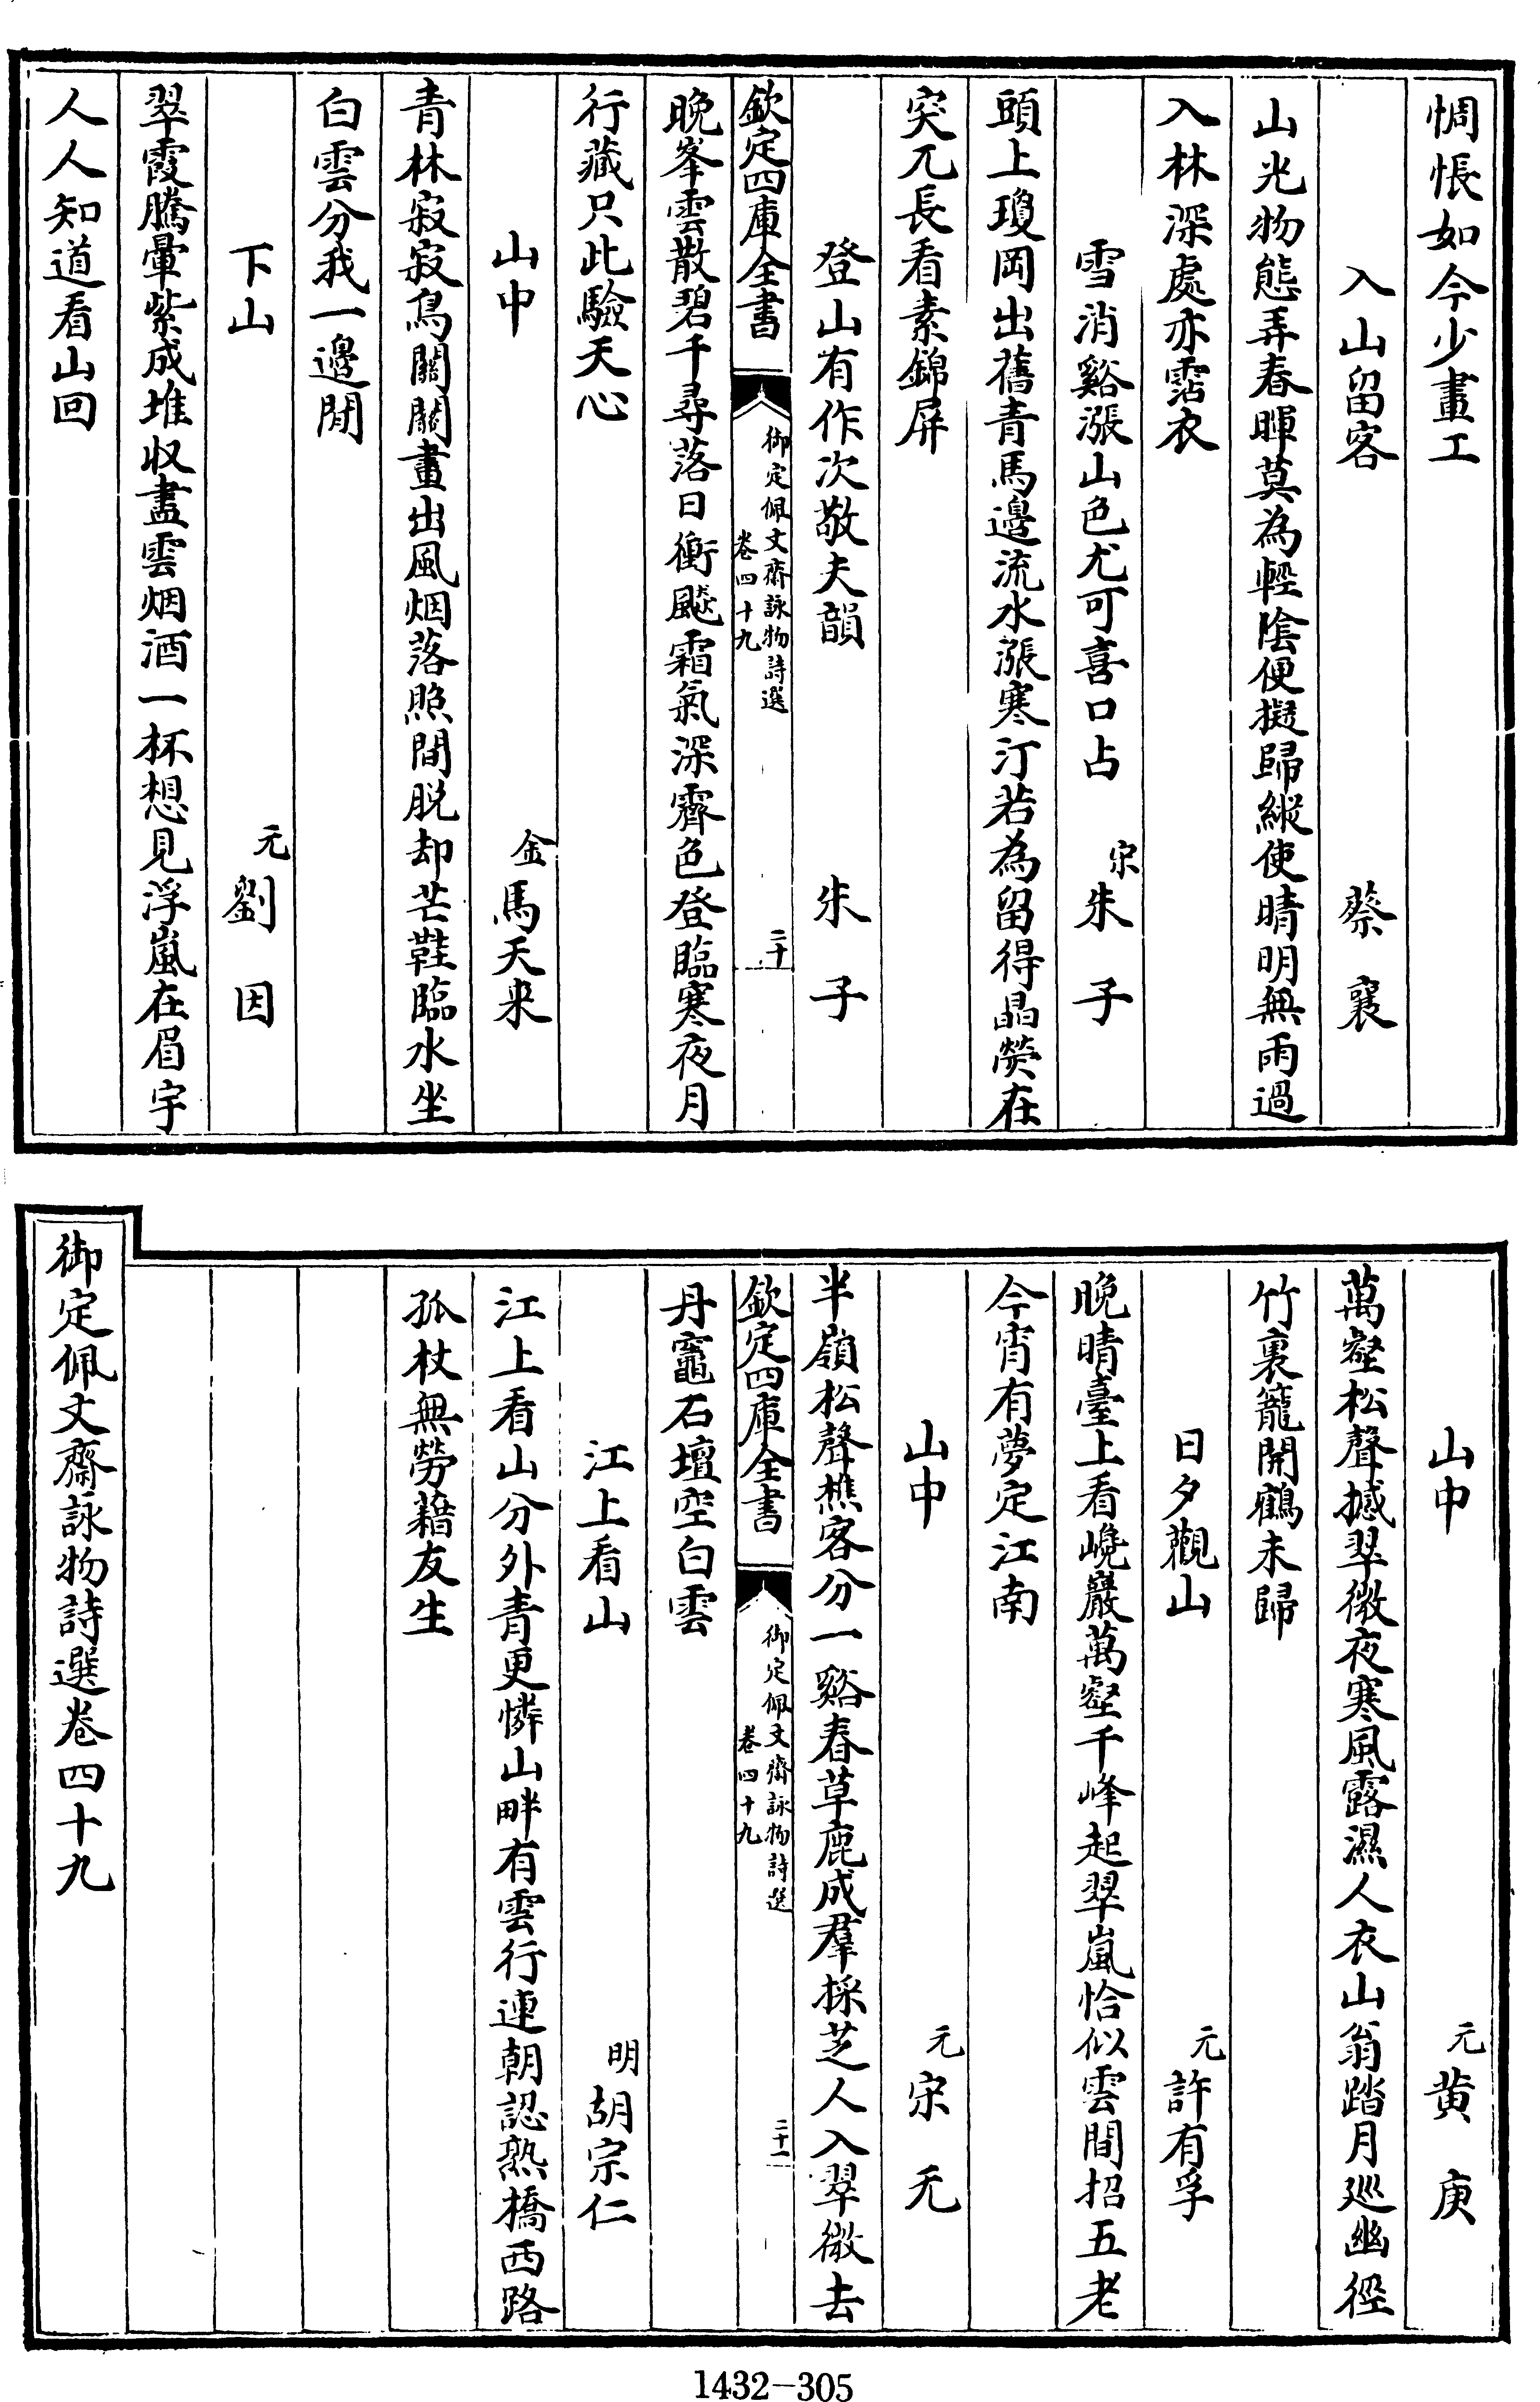 惆悵如今少畫工
入山留客　蔡襄
山光物態弄春暉莫為輕陰便擬歸縱使晴明無雨過
入林深處亦霑衣
雪消谿漲山色尤可喜口占　宋朱子
頭上瓊岡出舊青馬邊流水漲寒汀若為留得晶熒在
突兀長看素錦屏
登山有作次敬夫韻　朱子
欽定四庫全書
御定佩文齋詠物詩選
卷四十九
二十
晚峯雲散碧千尋落日衝飈霜氣深霽色登臨寒夜月
行藏只此驗天心
山中　金馬天來
青林寂寂鳥關關畫出風烟落照間脫却芒鞋臨水坐
白雲分我一邊閒
下山　元劉因
翠霞騰暈紫成堆収盡雲烟酒一杯想見浮嵐在眉宇
人人知道看山回
山中　元黃庚
萬壑松聲撼翠微夜寒風露濕人衣山翁踏月廵幽徑
竹裏籠開鶴未歸
日夕觀山　元許有孚
晚晴臺上看巉巖萬壑千峰起翠嵐恰似雲間招五老
今宵有夢定江南
山中　元宋无
半嶺松聲樵客分一谿春草鹿成羣採芝人入翠微去
欽定四庫全書
御定佩文齋詠物詩選
卷四十九
二十一
丹竈石壇空白雲
江上看山　明胡宗仁
江上看山分外青更憐山畔有雲行連朝認熟橋西路
孤杖無勞藉友生
御定佩文齋詠物詩選卷四十九
1432-305